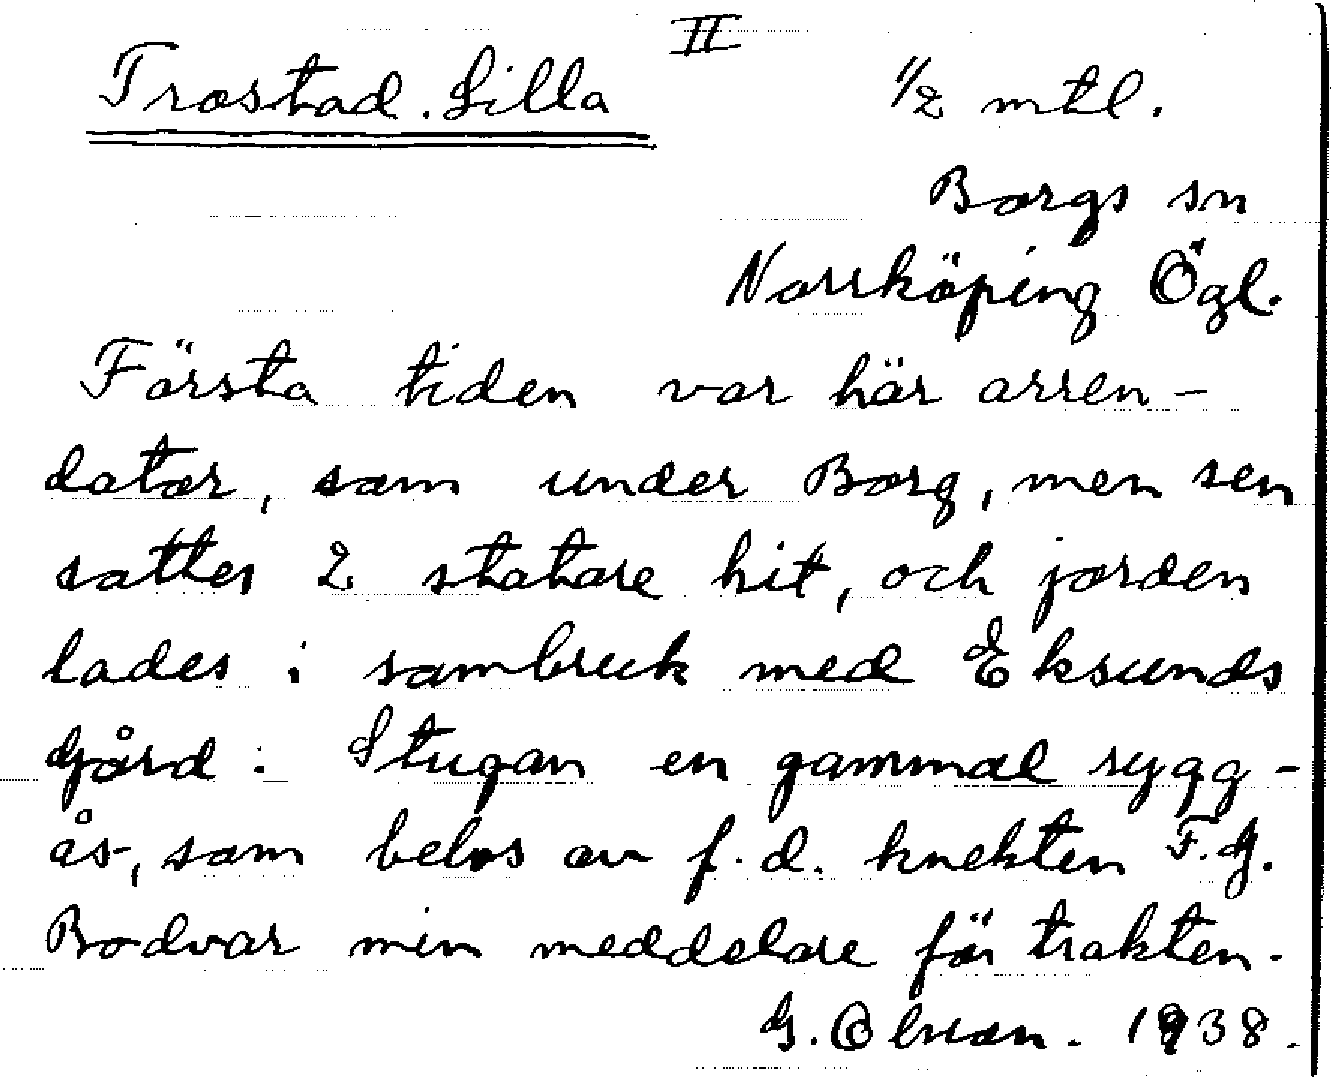 II
Trostad. Lilla 1/2 mtl.
Borgs sn
Norrköping Ögl.
Första tiden var här arren-
dator, som under Borg, men sen
sattes 2 statare hit, och jorden
lades i sambruk med Eksunds
Gård. Stugan en gammal rygg-
ås, som bebos av f.d. knekten F.G.
Bodvar min meddelare för trakten.
G. 1938.